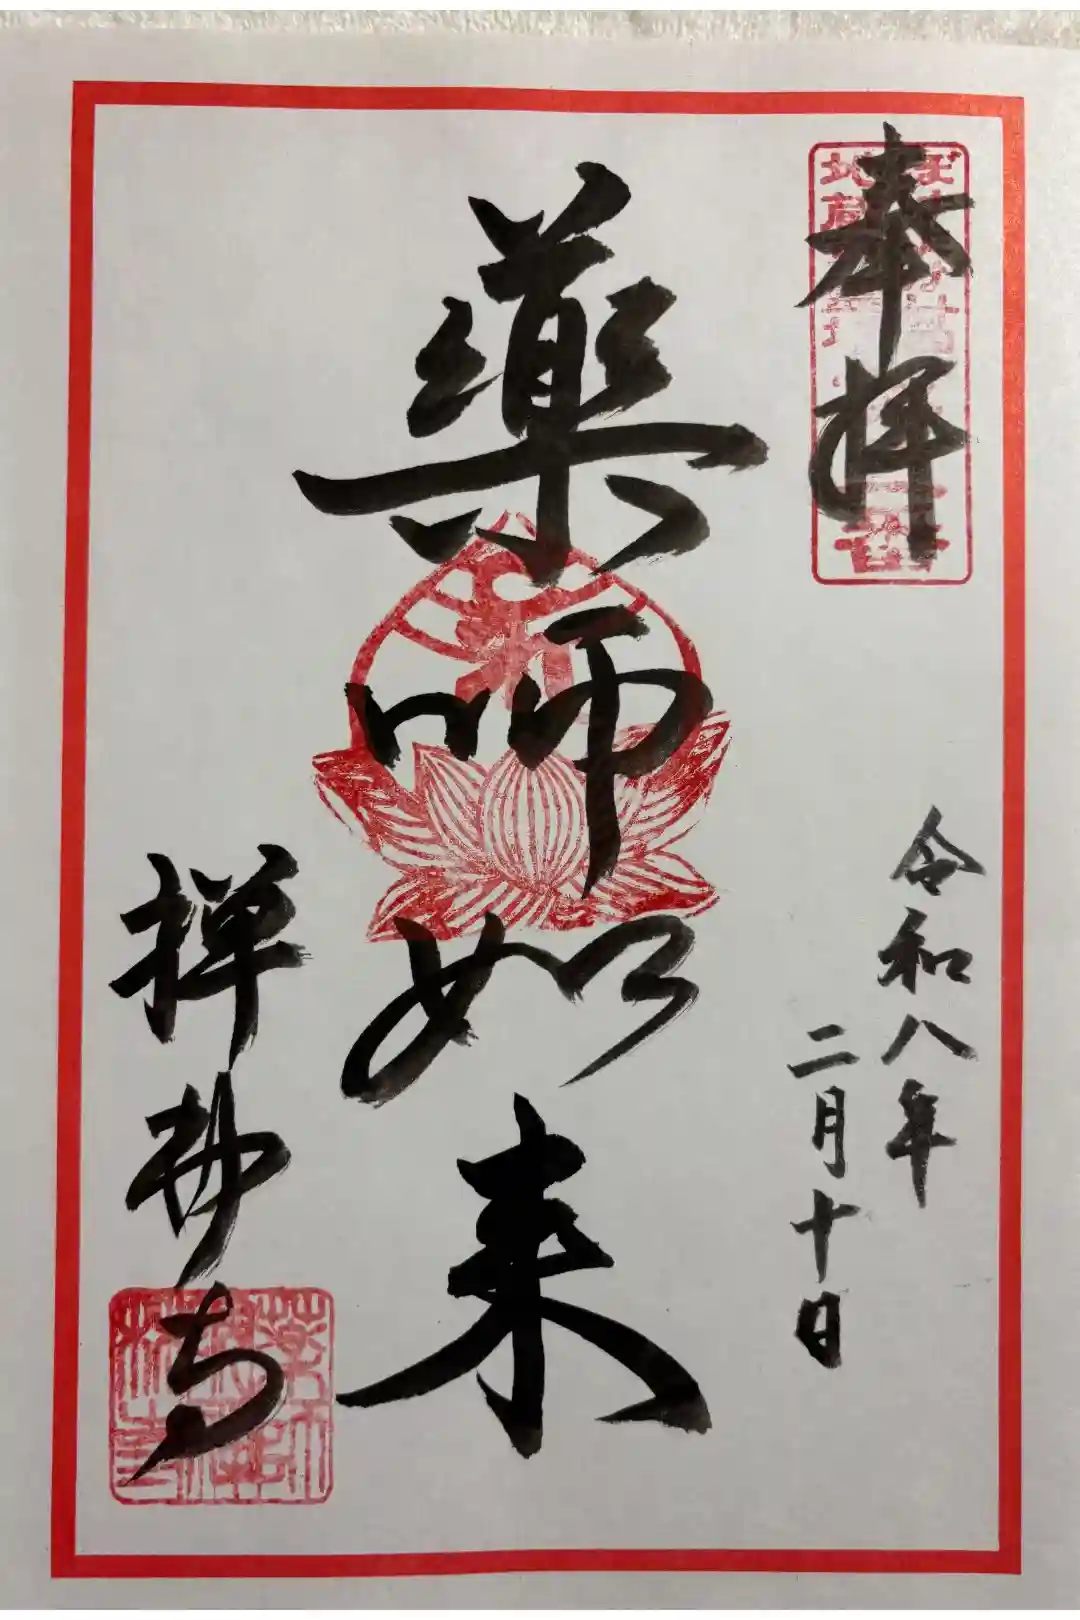 奉拝
令和八年
二月十日
薬師如来
禅抄寺